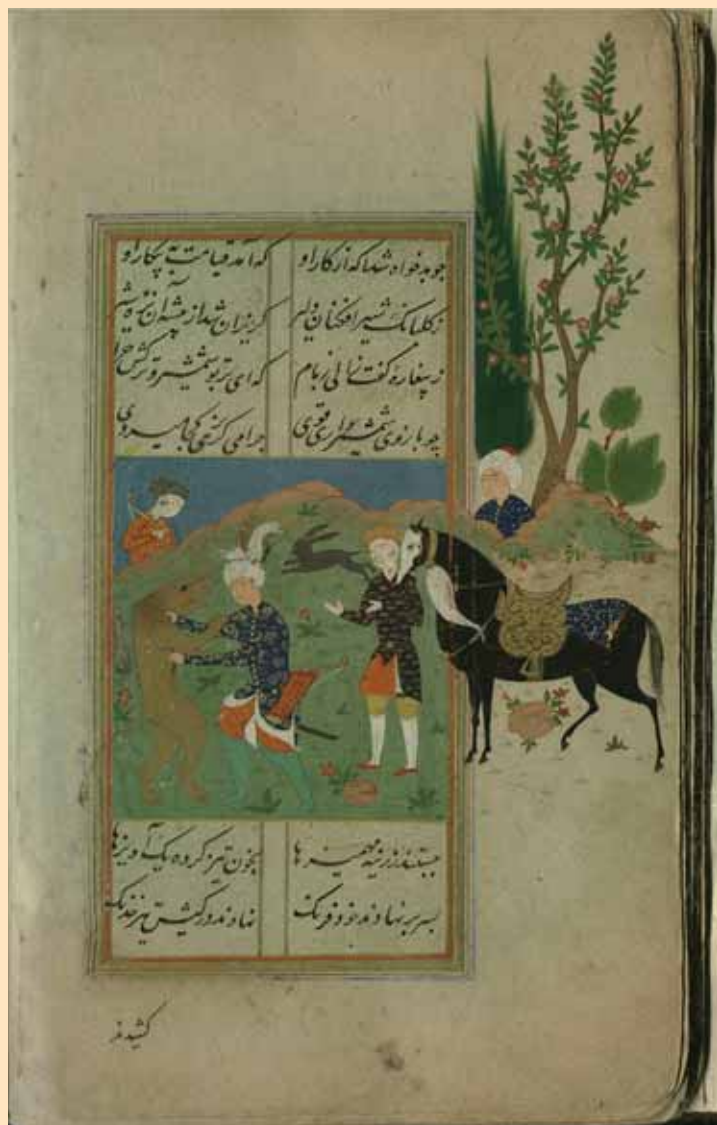 چو بدخواه شد آکه از کار او که آمد قیامت به پیکار او
ز کلبانک شیر افکنان دلیر کریزان شد از بیشه آن نره شیر
ز پیغاره کفت ز بام که ای بر تو شمشیر و ترکش حرام
چو بازوی شمشیر داری قوی حرامی کری کن کجا میروی
ببستند زرینه مهمیزها بخون تیز کرده آویزها
بسر بر نهادند خود فرنک نهادند در کیش تیر خدنک
کشیدند